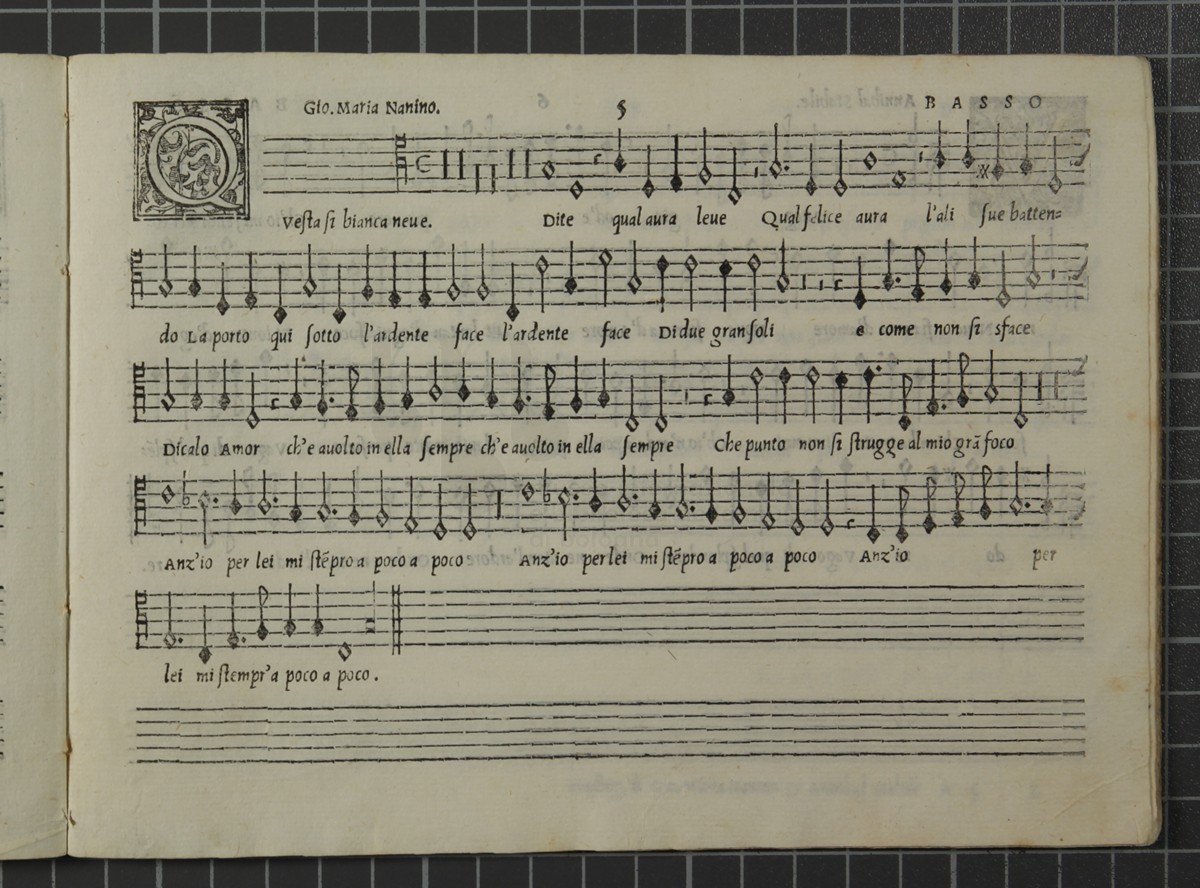 Gio. Maria Nanino. 5 BASSO
QVesta si bianca neue. Dite qual aura leue Qual felice aura l'ali sue batten=
do La porto qui sotto l'ardente face l'ardente face Di due gran soli e come non si sface
Dicalo Amor ch'e auolto in ella sempre ch'e auolto in ella sempre Che punto non si strugge al mio grã foco
Anz'io per lei mi stẽpro a poco a poco Anz'io per lei mi stẽpro a poco a poco Anz'io per
lei mi stempr'a poco a poco.